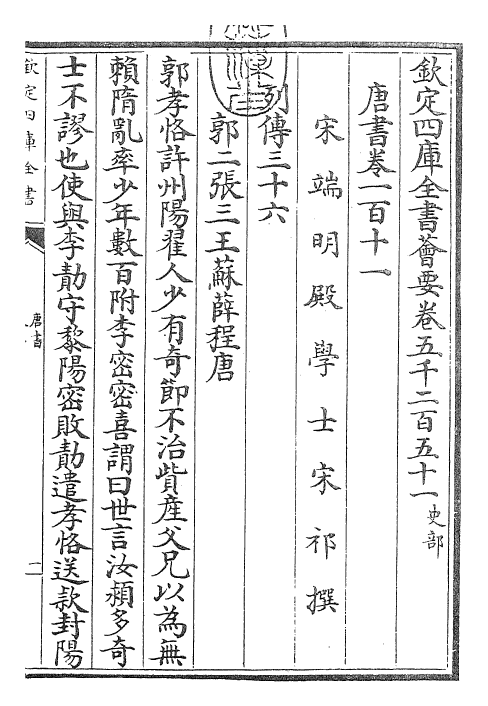 欽定四庫全書薈要卷五千二百五十一史部
唐書卷一百十一
宋端明殿學士宋祁撰
列傳三十六
郭二張三王蘇薛程唐
郭孝恪許州陽翟人少有奇節不治貲產父兄以為無
賴隋亂率少年數百附李密密喜謂曰世言汝潁多奇
士不謬也使與李勣守黎陽密敗勣遣孝恪送款封陽
欽定四庫全書
唐書